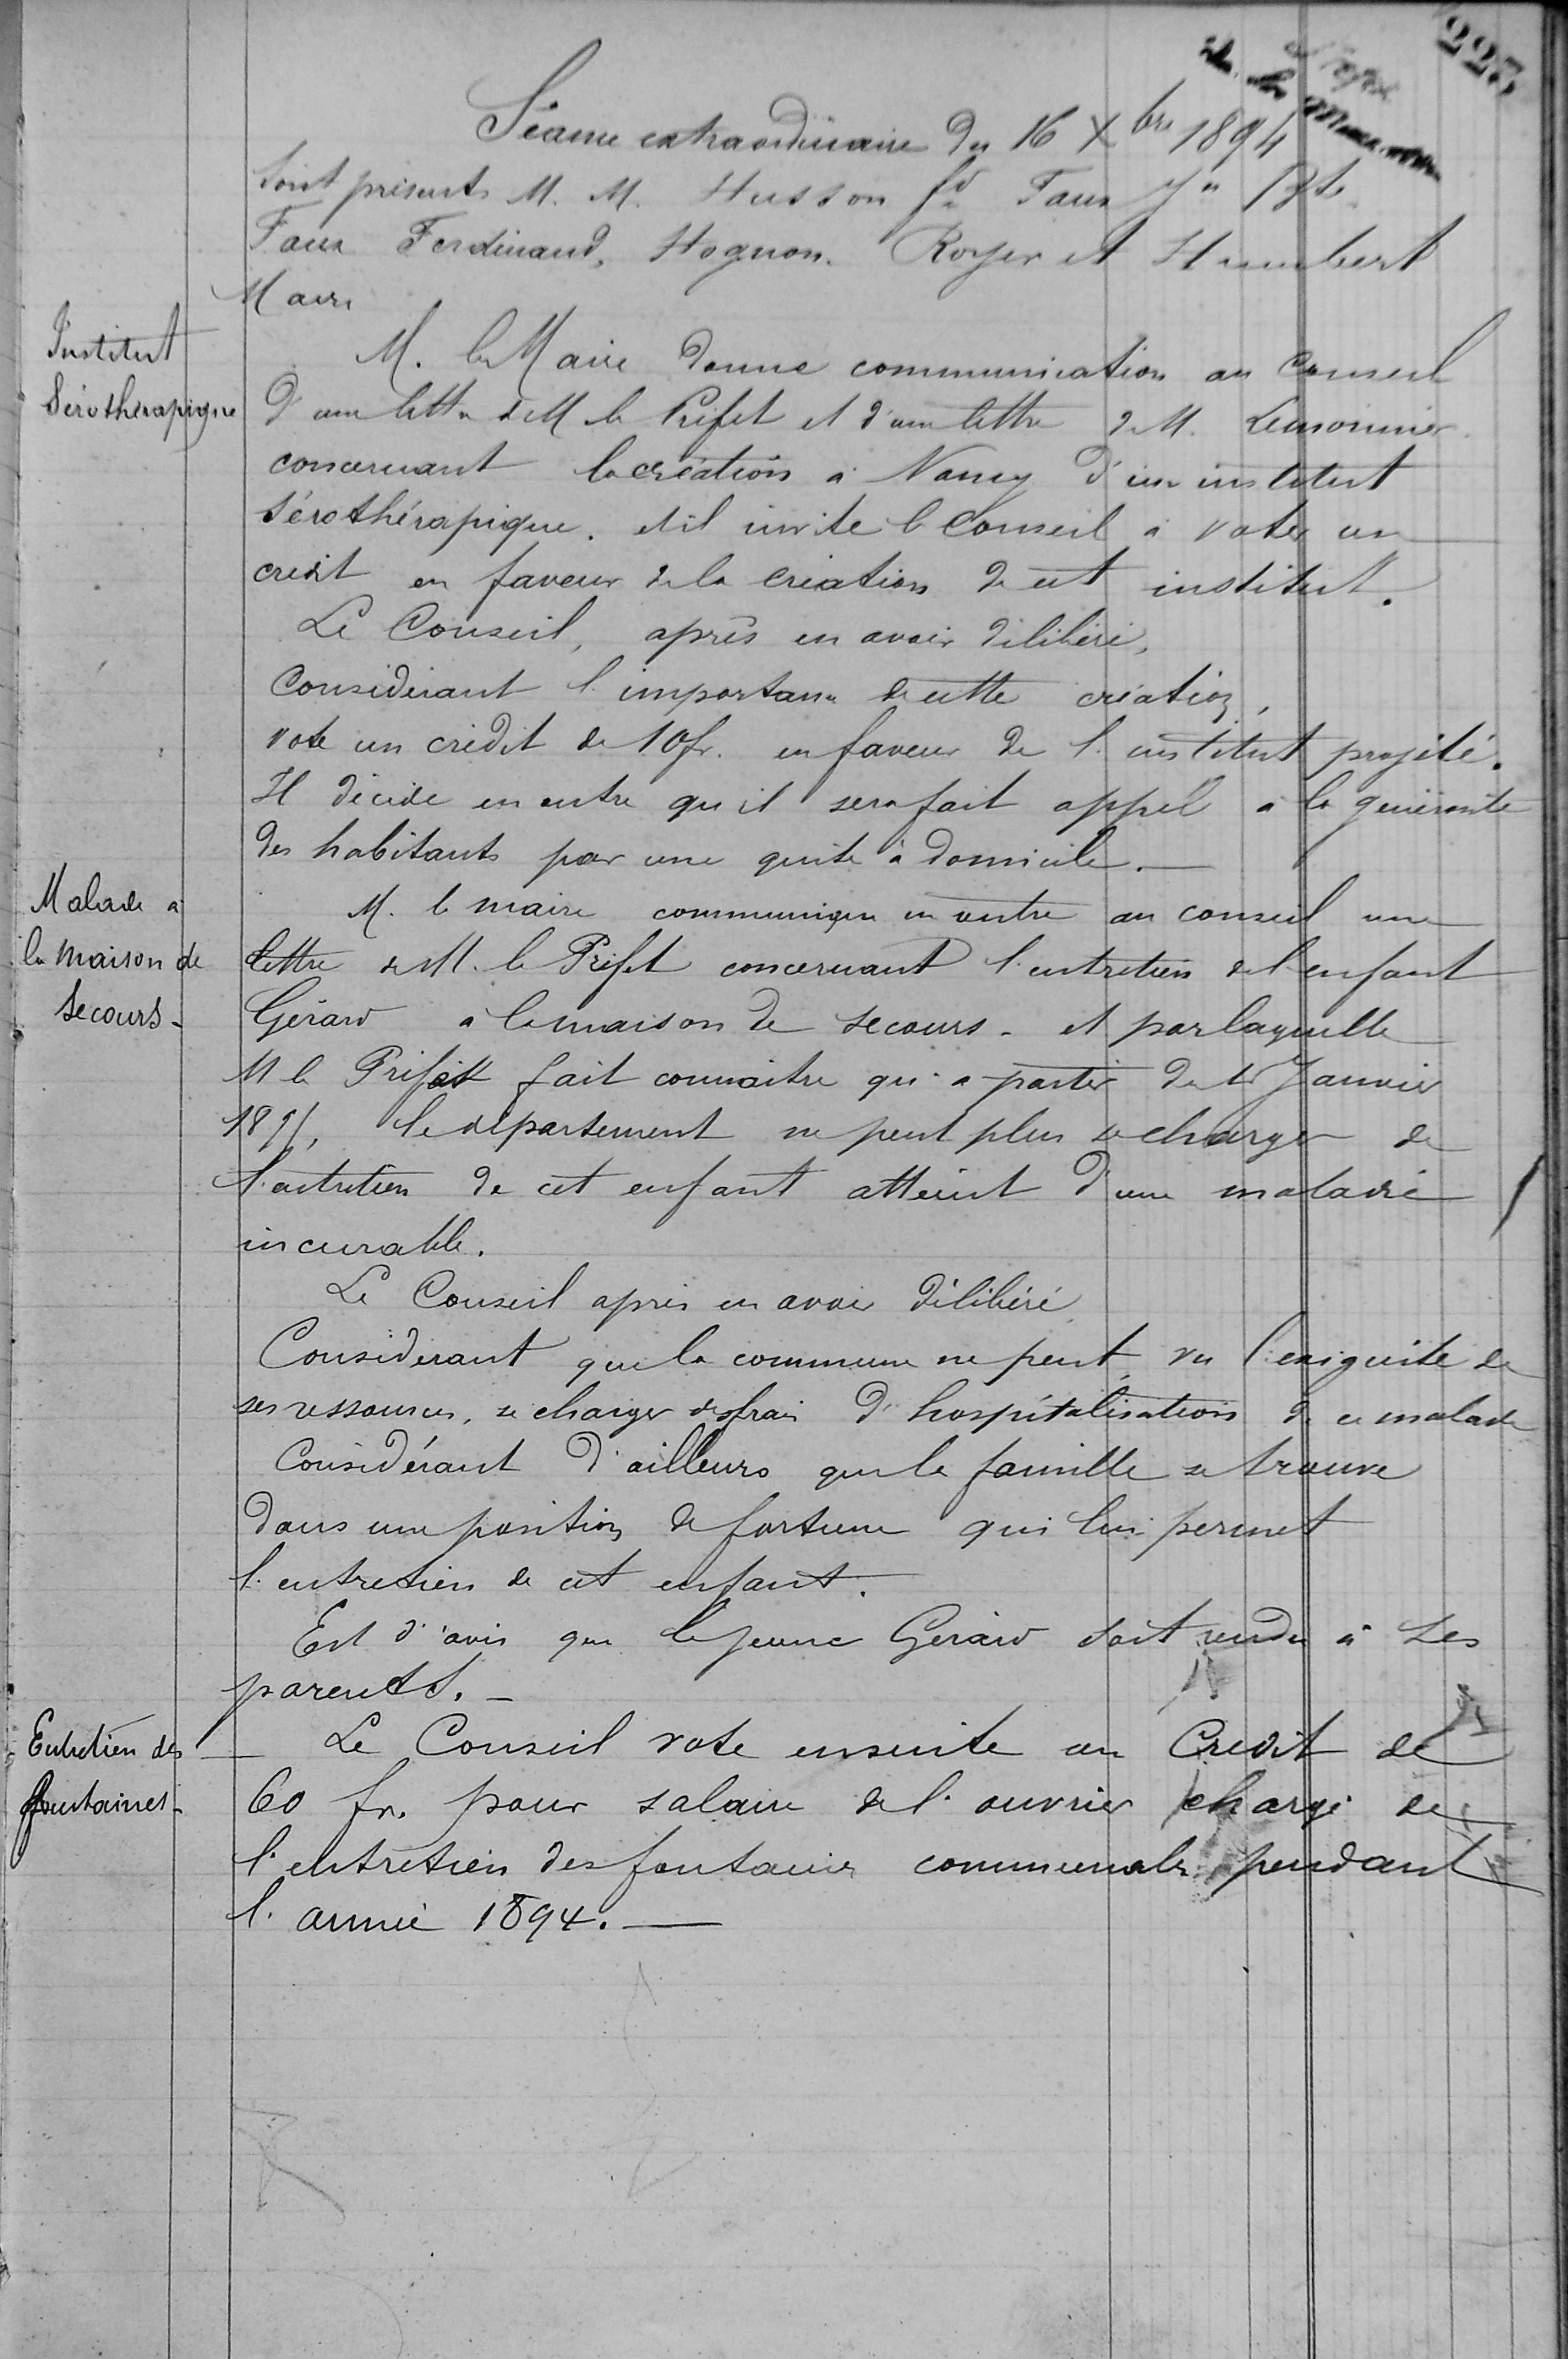 223
Séance extraordinaire du 16 Xbre 1894
Sont présents M. M. Husson fd Faux Jn Bte
Faux Ferdinand, Hognon. Royer et Humbert
Maire
Institut
Sérothérapique
M. le Maire donne communication au Conseil
d'une lettre de M le Préfet et d'une lettre de M. Lemonnier
concernant la création à Nancy d'un institut
Sérothérapique. et il invite le Conseil à voter un
crédit en faveur de la création de cet institut.
Le Conseil, après en avoir délibéré,
Considérant l'importance de cette création,
vote un crédit de 10 fr. en faveur de l'institut projeté.
Il décide en outre qu'il sera fait appel à la générosité
des habitants par une quête à domicile. —
Malade à
la maison de
Secours -
M. le maire communique en outre au conseil une
lettre de M. le Préfet concernant l'entretien de l'enfant
Gérard à la maison de secours - et par laquelle
M le Préfet fait connaître qu'à partir du 1er Janvier
1895, le département ne peut plus se charger de
l'entretien de cet enfant atteint d'une maladie
incurable.
Le Conseil après en avoir délibéré,
Considérant que la commune ne peut, vu l'exiguité de
ses ressources, se charger des frais d'hospitalisation de ce malade
Considérant d'ailleurs que la famille se trouve
dans une position de fortune qui lui permet
l'entretien de cet enfant.
Est d'avis que le jeune Gérard soit rendu à ses
parents. —
Entretien des
fontaines -
Le Conseil vote ensuite un Crédit de
60 fr. pour salaire de l'ouvrier chargé de
l'entretien des fontaines communales pendant
l'année 1894. —